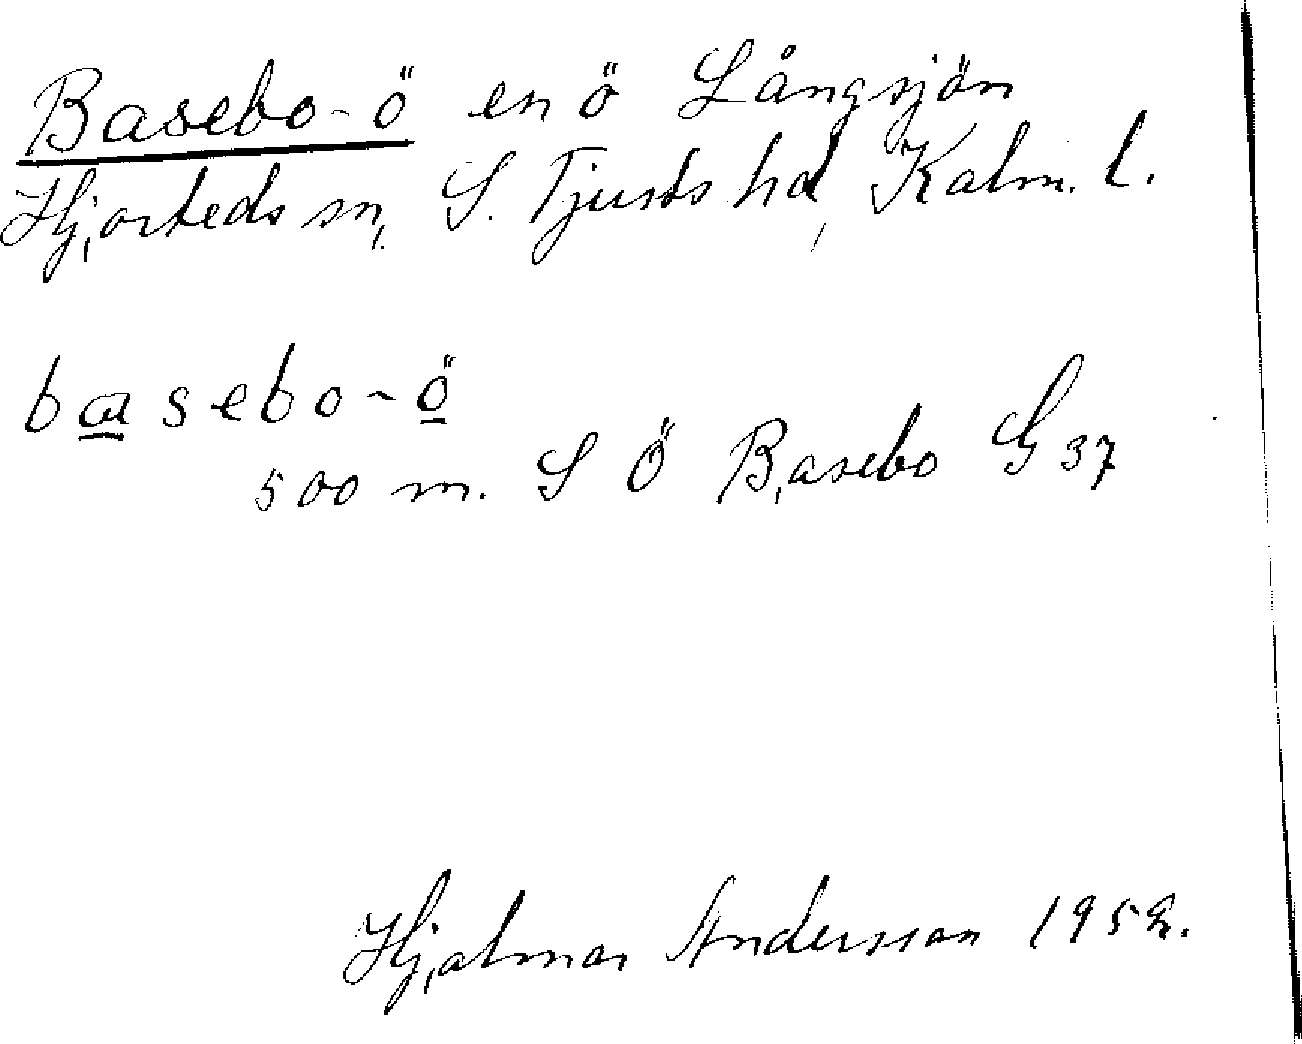 Basebo-ö en ö Långsjön
Hjorteds sn, S. Tjusts hd, Kalm. l.
basebo-ö
500 m. S Ö Basebo G 37
Hjalmar Andersson 1952.